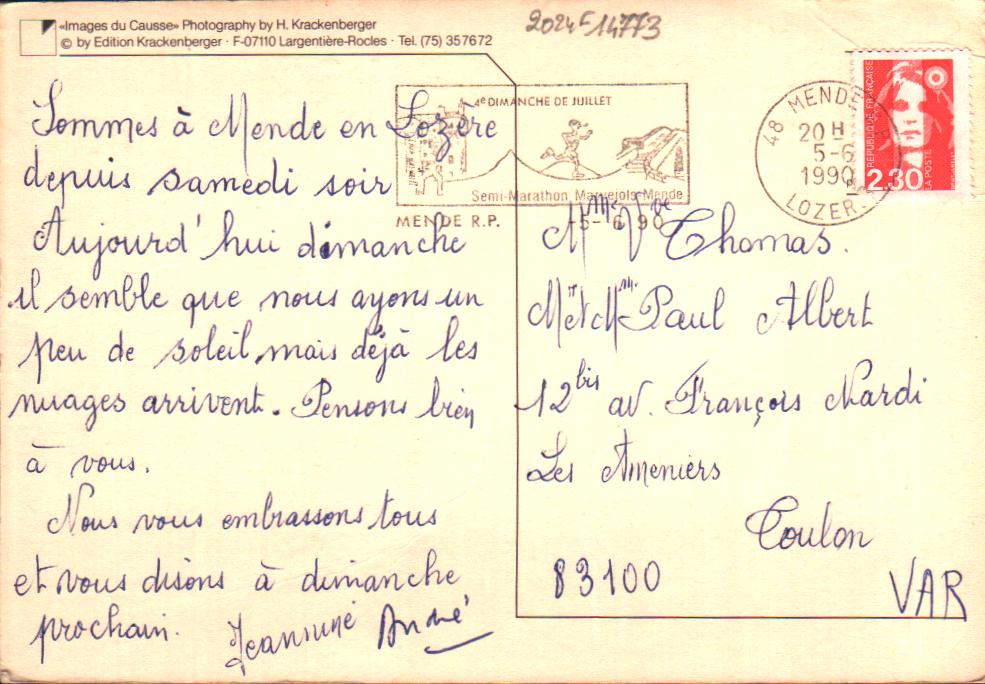 «Images du Causse» Photography by H. Krackenberger
© by Edition Krackenberger · F-07110 Largentière-Rocles · Tel. (75) 357672
2024F14773
Sommes à Mende en Lozère
depuis samedi soir
Aujourd'hui dimanche
il semble que nous ayons un
peu de soleil, mais déjà les
nuages arrivent. Pensons bien
à vous.
Nous vous embrassons tous
et vous disons à dimanche
prochain.
André
4e DIMANCHE DE JUILLET
Semi-Marathon Marvejols-Mende
MENDE R.P.
5-6 90
48 MENDE
20 H
5-6
1990
LOZER
RÉPUBLIQUE FRANÇAISE
LA POSTE
2,30
Mme Vve Thomas.
Mr et Mme Paul Albert
12 bis av. François Nardi
Les Ameniers
Toulon
83100
VAR